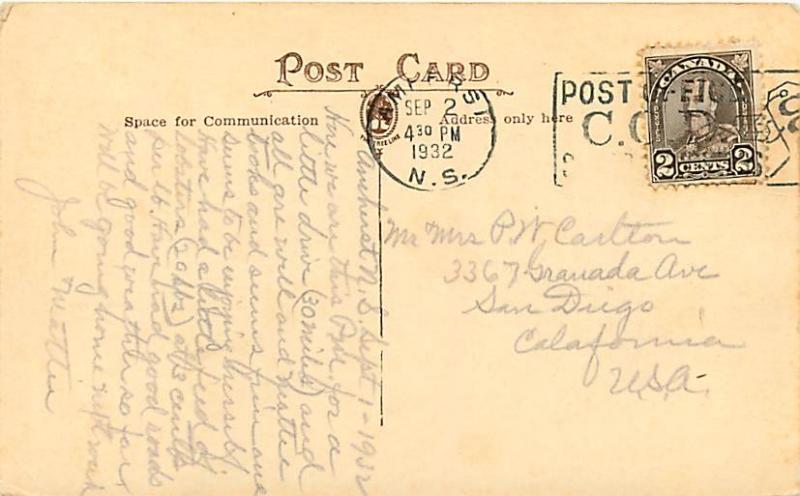 POST CARD
Space for Communication
Address only here
AMHERST
SEP 2
4 30 PM
1932
N.S.
POST OFFICE
C.O.D.
CANADA
2 CENTS 2
Amherst N.S Sept 1-1932
Here we are this P.M. for a
little drive (30 miles) and
all are well and Mattie
looks and seems fine and
seems to be enjoying herself
Have had a little feed of
lobsters (2 lbs) at 13 cents
per lb. Have had good roads
and good weather so far
Will be going home next week
John Matten
Mr Mrs P.W. Carlton
3367 Granada Ave
San Diego
Calafornia
U.S.A.